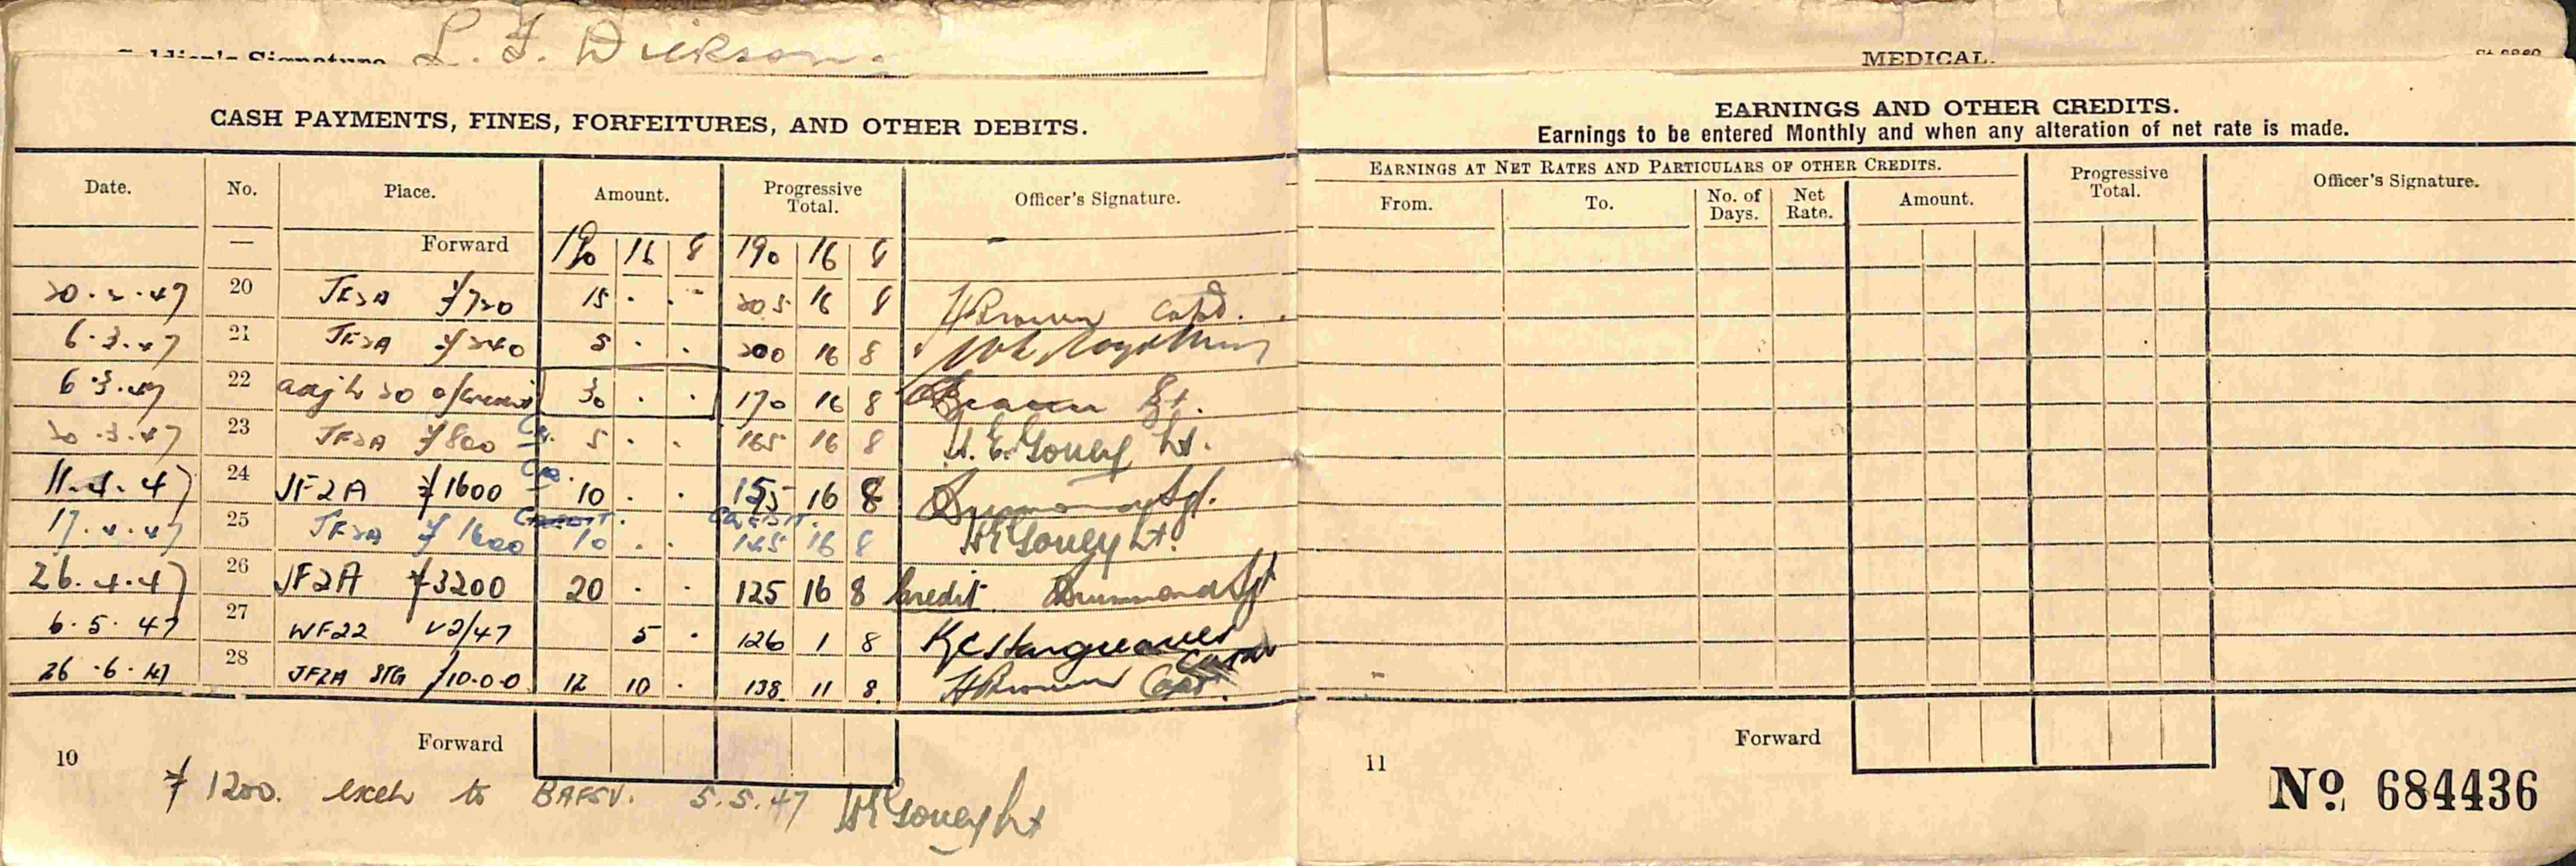 L. F. Dickson.
MEDICAL.
CASH PAYMENTS, FINES, FORFEITURES, AND OTHER DEBITS.
Date. No. Place. Amount. Progressive Total. Officer's Signature.
— Forward 190 16 8 190 16 8
20.2.47 20 JF2A ¥720 15 . . 205 16 8 HBrown Capt.
6.3.47 21 JF2A ¥240 5 . . 200 16 8
6.3.47 22 30 . . 170 16 8
20.3.47 23 JF2A ¥800 Cr. 5 . . 165 16 8 H.E. Gouey Lt.
11.4.47 24 JF2A ¥1600 10 . . 155 16 8
17.4.47 25 JF2A ¥1600 CREDIT. 10 . . CREDIT. 145 16 8 HEGouey Lt.
26.4.47 26 JF2A ¥3200 20 . . 125 16 8 Credit Drummond Sgt
6.5.47 27 WF22 V2/47 5 . 126 1 8 KCHargreaves
26.6.47 28 JF2A STG £10.0.0 12 10 . 138 11 8 HBrown Capt.
Forward
10
¥1200. exch to BAFSV. 5.5.47 HEGouey Lt
EARNINGS AND OTHER CREDITS.
Earnings to be entered Monthly and when any alteration of net rate is made.
EARNINGS AT NET RATES AND PARTICULARS OF OTHER CREDITS. Progressive Total. Officer's Signature.
From. To. No. of Days. Net Rate. Amount.
Forward
11
No. 684436